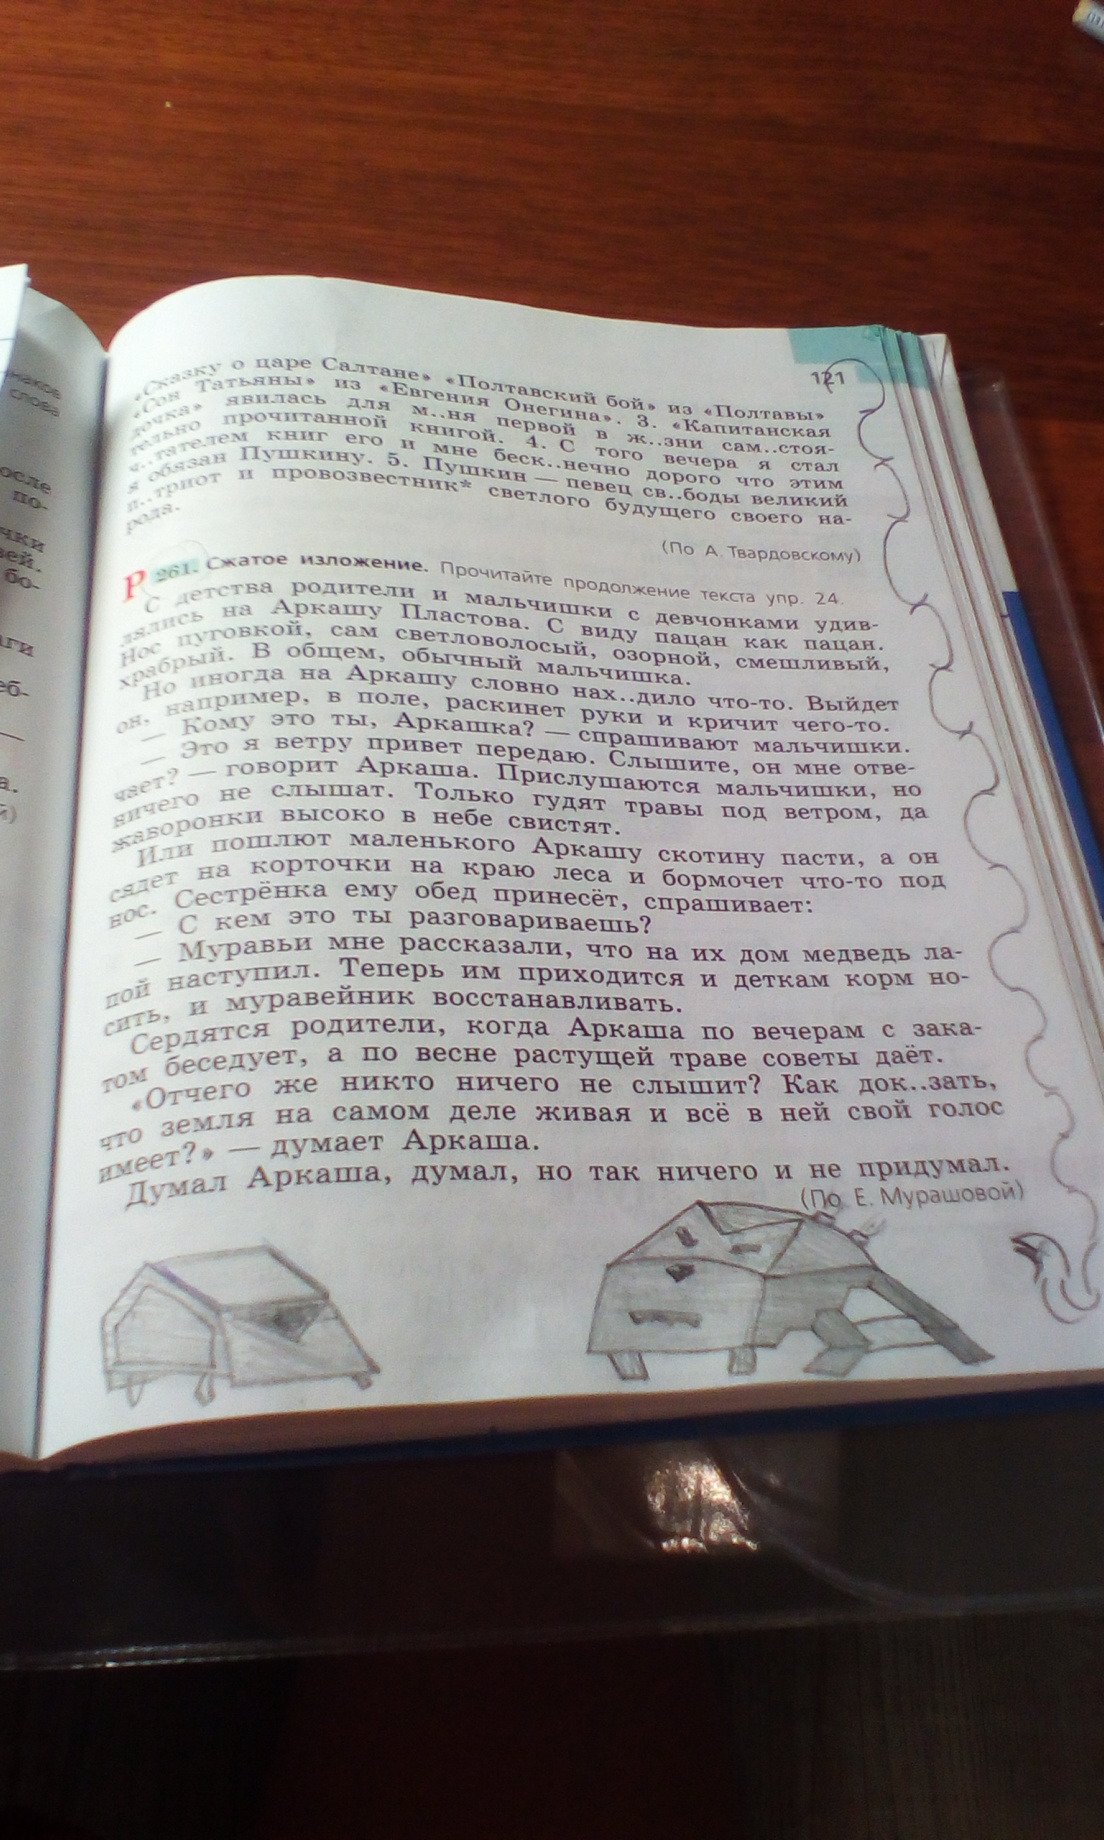 121
«Сказку о царе Салтане» «Полтавский бой» из «Полтавы»
«Сон Татьяны» из «Евгения Онегина». 3. «Капитанская
дочка» явилась для м..ня первой в ж..зни сам..стоя-
тельно прочитанной книгой. 4. С того вечера я стал
ч..тателем книг его и мне беск..нечно дорого что этим
я обязан Пушкину. 5. Пушкин — певец св..боды великий
п..триот и провозвестник* светлого будущего своего на-
рода.
(По А. Твардовскому)
Р 261. Сжатое изложение. Прочитайте продолжение текста упр. 24.
С детства родители и мальчишки с девчонками удив-
лялись на Аркашу Пластова. С виду пацан как пацан.
Нос пуговкой, сам светловолосый, озорной, смешливый,
храбрый. В общем, обычный мальчишка.
Но иногда на Аркашу словно нах..дило что-то. Выйдет
он, например, в поле, раскинет руки и кричит чего-то.
— Кому это ты, Аркашка? — спрашивают мальчишки.
— Это я ветру привет передаю. Слышите, он мне отве-
чает? — говорит Аркаша. Прислушаются мальчишки, но
ничего не слышат. Только гудят травы под ветром, да
жаворонки высоко в небе свистят.
Или пошлют маленького Аркашу скотину пасти, а он
сядет на корточки на краю леса и бормочет что-то под
нос. Сестрёнка ему обед принесёт, спрашивает:
— С кем это ты разговариваешь?
— Муравьи мне рассказали, что на их дом медведь ла-
пой наступил. Теперь им приходится и деткам корм но-
сить, и муравейник восстанавливать.
Сердятся родители, когда Аркаша по вечерам с зака-
том беседует, а по весне растущей траве советы даёт.
«Отчего же никто ничего не слышит? Как док..зать,
что земля на самом деле живая и всё в ней свой голос
имеет?» — думает Аркаша.
Думал Аркаша, думал, но так ничего и не придумал.
(По Е. Мурашовой)
слова
осле
по-
чки
вей.
бо-
еб-